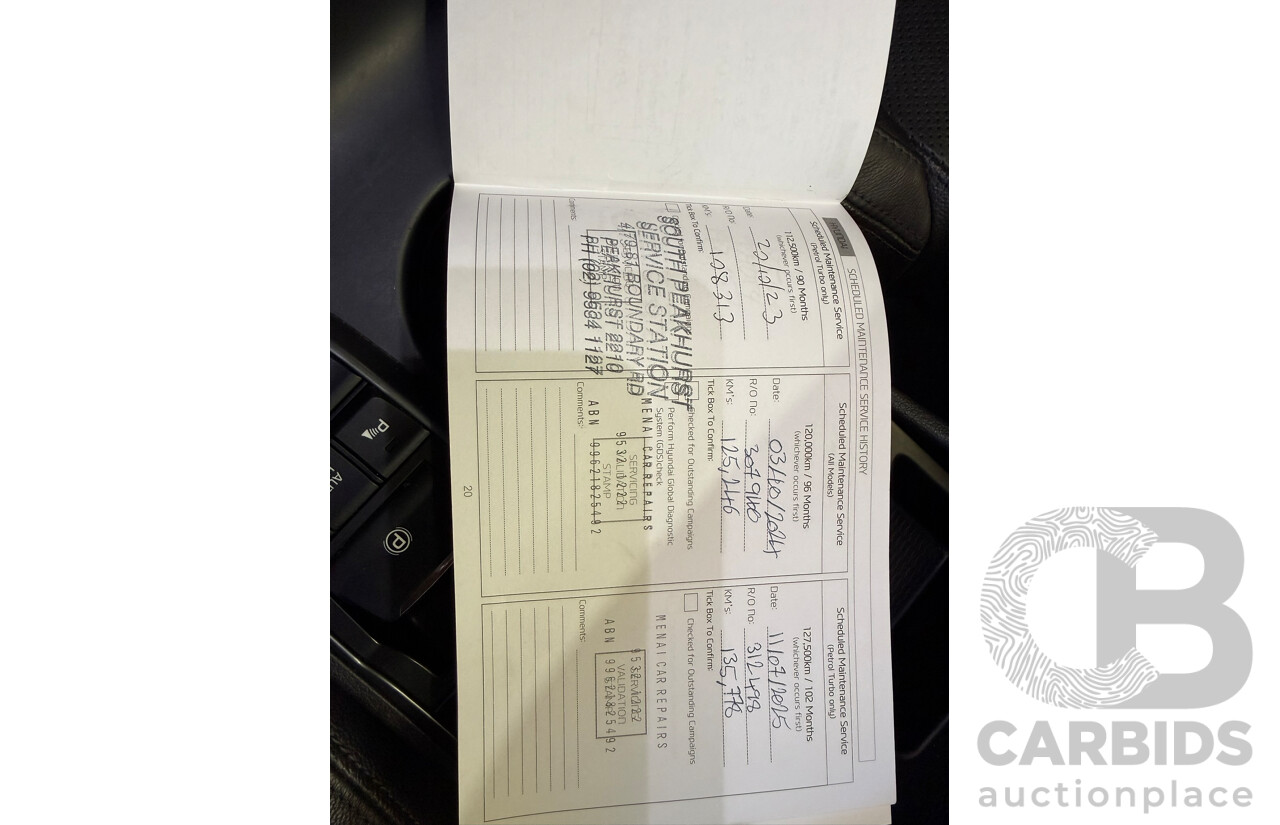 HYUNDAI
SCHEDULED MAINTENANCE SERVICE HISTORY
Scheduled Maintenance Service
(Petrol Turbo only)
112,500km / 90 Months
(whichever occurs first)
Date:
R/O No:
KM's: 108313
Tick Box To Confirm:
SOUTH PEAKHURST
SERVICE STATION
BOUNDARY RD
PEAKHURST 2210
PH (02) 9584 1127
Comments:
Scheduled Maintenance Service
(All Models)
120,000km / 96 Months
(whichever occurs first)
Date: 03/10/2024
R/O No: 307940
KM's: 125,246
Tick Box To Confirm:
Checked for Outstanding Campaigns
Perform Hyundai Global Diagnostic
System (GDS) check
MENAI CAR REPAIRS
SERVICING
9532 1222
VALIDATION
STAMP
ABN 99621825492
Comments:
Scheduled Maintenance Service
(Petrol Turbo only)
127,500km / 102 Months
(whichever occurs first)
Date: 11/07/2025
R/O No: 312498
KM's: 135,778
Tick Box To Confirm:
Checked for Outstanding Campaigns
MENAI CAR REPAIRS
9532 1222
VALIDATION
ABN 99621825492
Comments:
20
P
P
CB
CARBIDS
auctionplace